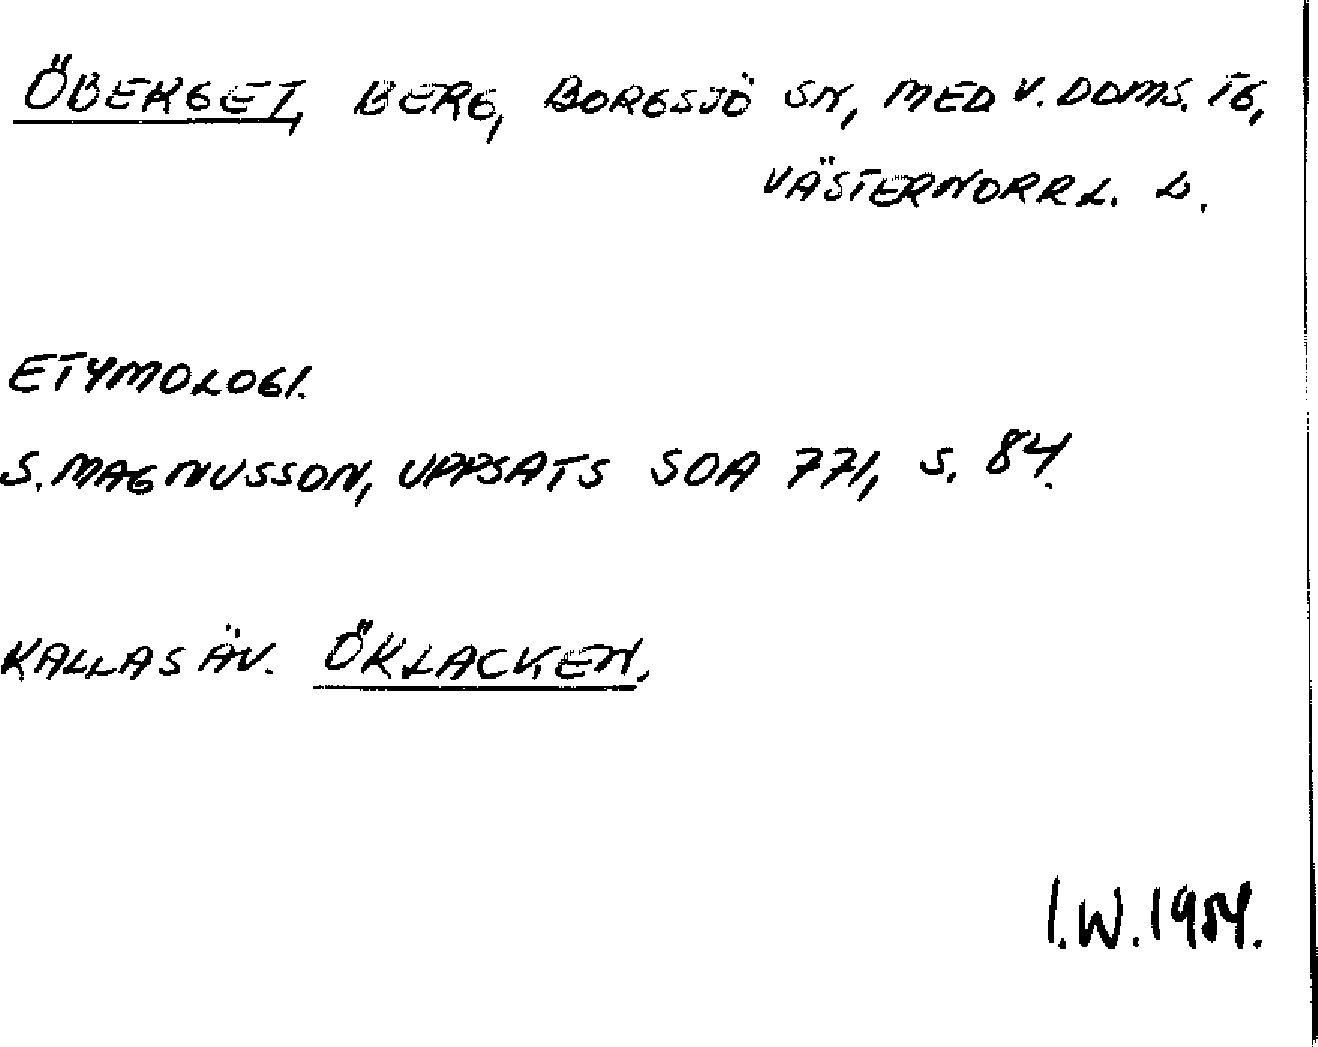 ÖBERGET, BERG, BORGSJÖ SN, MED V. DOMS. TG,
VÄSTERNORRL. L.
ETYMOLOGI.
S. MAGNUSSON, UPPSATS SOA 771, S. 84.
KALLAS ÄV. ÖKLACKEN.
I.W. 1984.